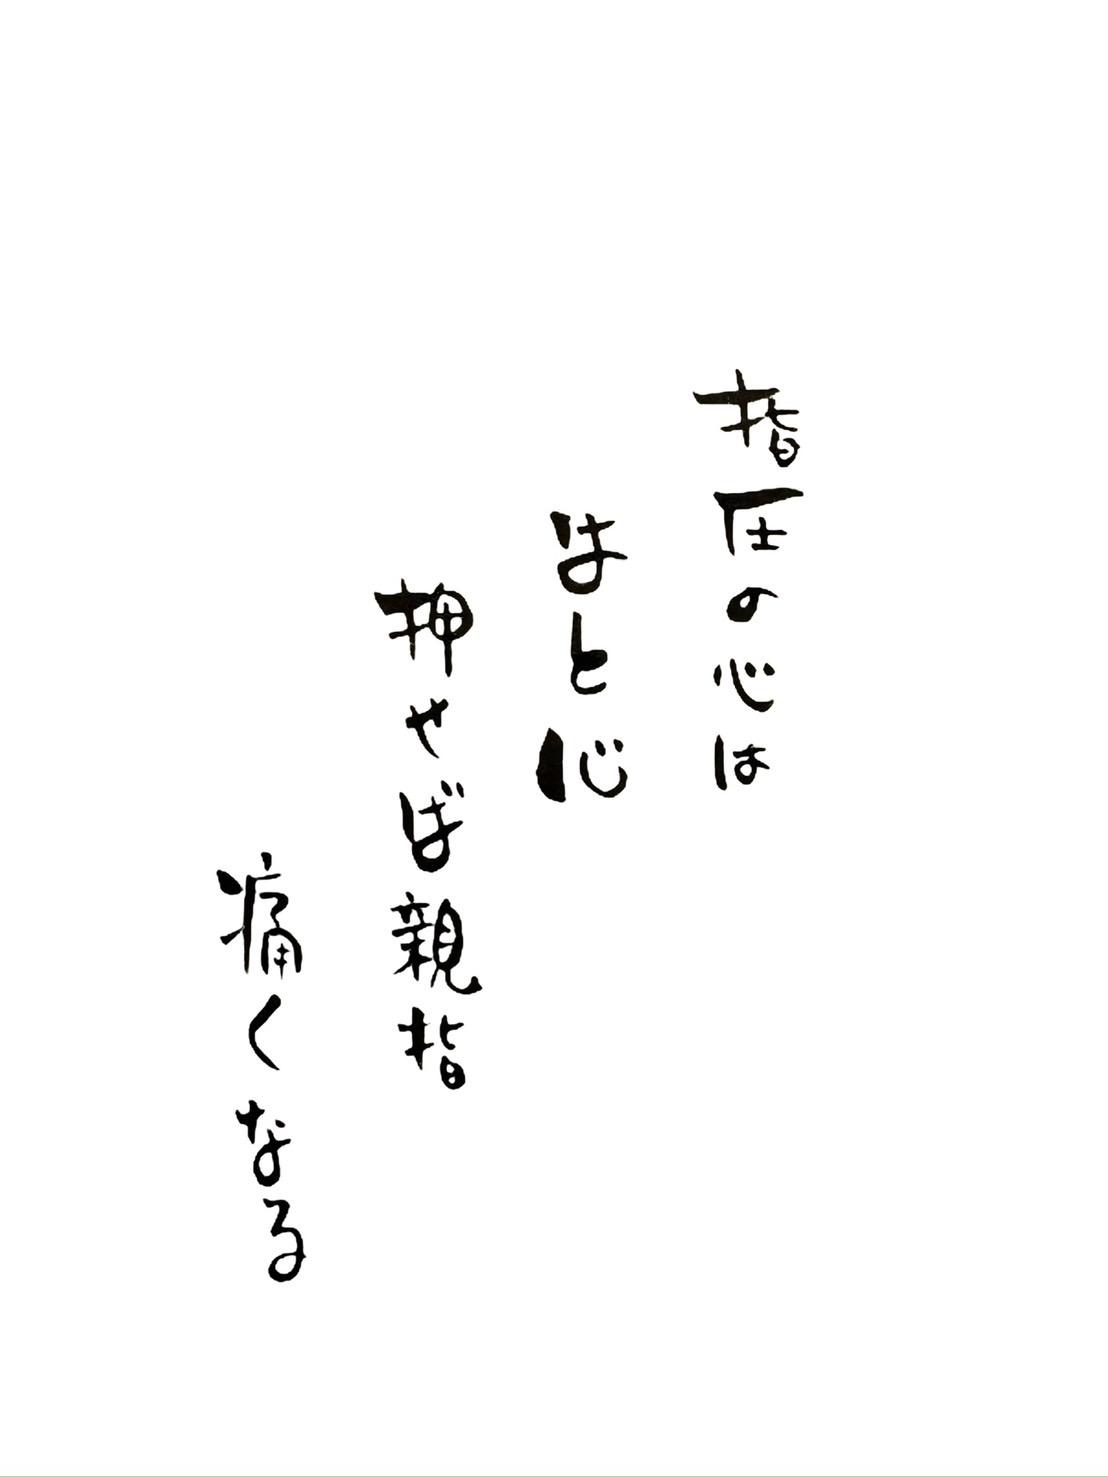 指圧の心は
はと心
押せば親指
痛くなる